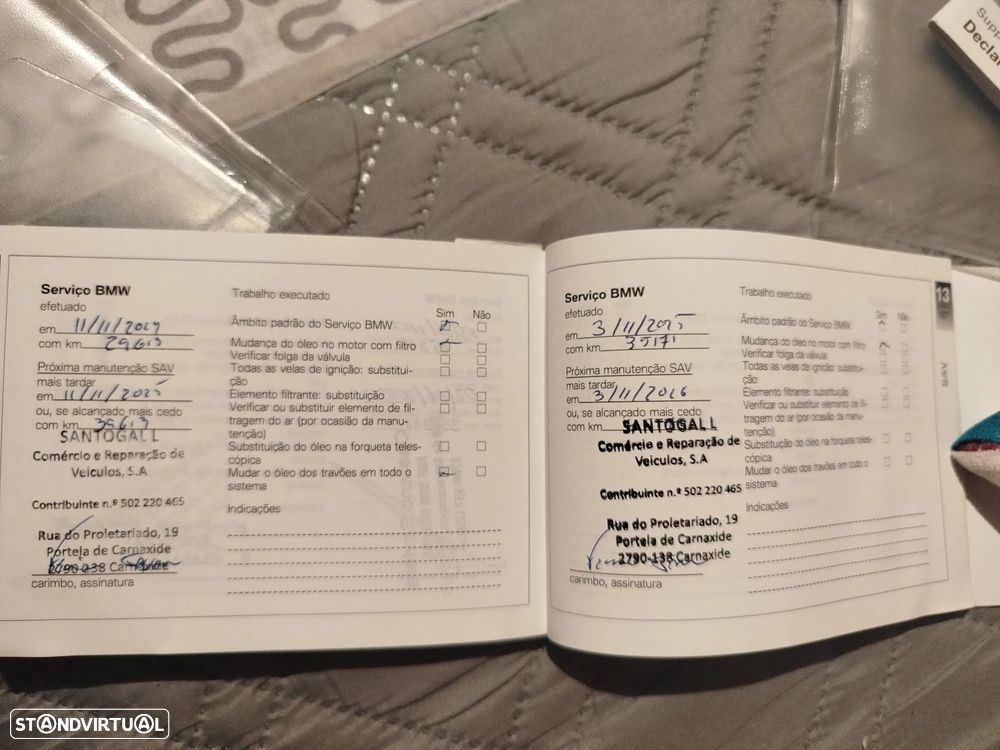 Supp
Decla
Serviço BMW
efetuado
em 11/11/2024
com km 29613
Próxima manutenção SAV
mais tardar
em 11/11/2025
ou, se alcançado mais cedo
com km 39613
SANTOGALL
Comércio e Reparação de
Veiculos, S.A
Contribuinte n.º 502 220 465
Rua do Proletariado, 19
Portela de Carnaxide
2790-138 Carnaxide
carimbo, assinatura
Trabalho executado
Sim Não
Âmbito padrão do Serviço BMW
Mudança do óleo no motor com filtro
Verificar folga da válvula
Todas as velas de ignição: substitui-
ção
Elemento filtrante: substituição
Verificar ou substituir elemento de fil-
tragem do ar (por ocasião da manu-
tenção)
Substituição do óleo na forqueta teles-
cópica
Mudar o óleo dos travões em todo o
sistema
Indicações
Serviço BMW
efetuado
em 3/11/2025
com km 35171
Próxima manutenção SAV
mais tardar
em 3/11/2026
ou, se alcançado mais cedo
com km
SANTOGALL
Comércio e Reparação de
Veiculos, S.A
Contribuinte n.º 502 220 465
Rua do Proletariado, 19
Portela de Carnaxide
2790-138 Carnaxide
carimbo, assinatura
Trabalho executado
Sim Não
Âmbito padrão do Serviço BMW
Mudança do óleo no motor com filtro
Verificar folga da válvula
Todas as velas de ignição: substitui-
ção
Elemento filtrante: substituição
Verificar ou substituir elemento de fil-
tragem do ar (por ocasião da manu-
tenção)
Substituição do óleo na forqueta teles-
cópica
Mudar o óleo dos travões em todo o
sistema
Indicações
13
SAV
STANDVIRTUAL